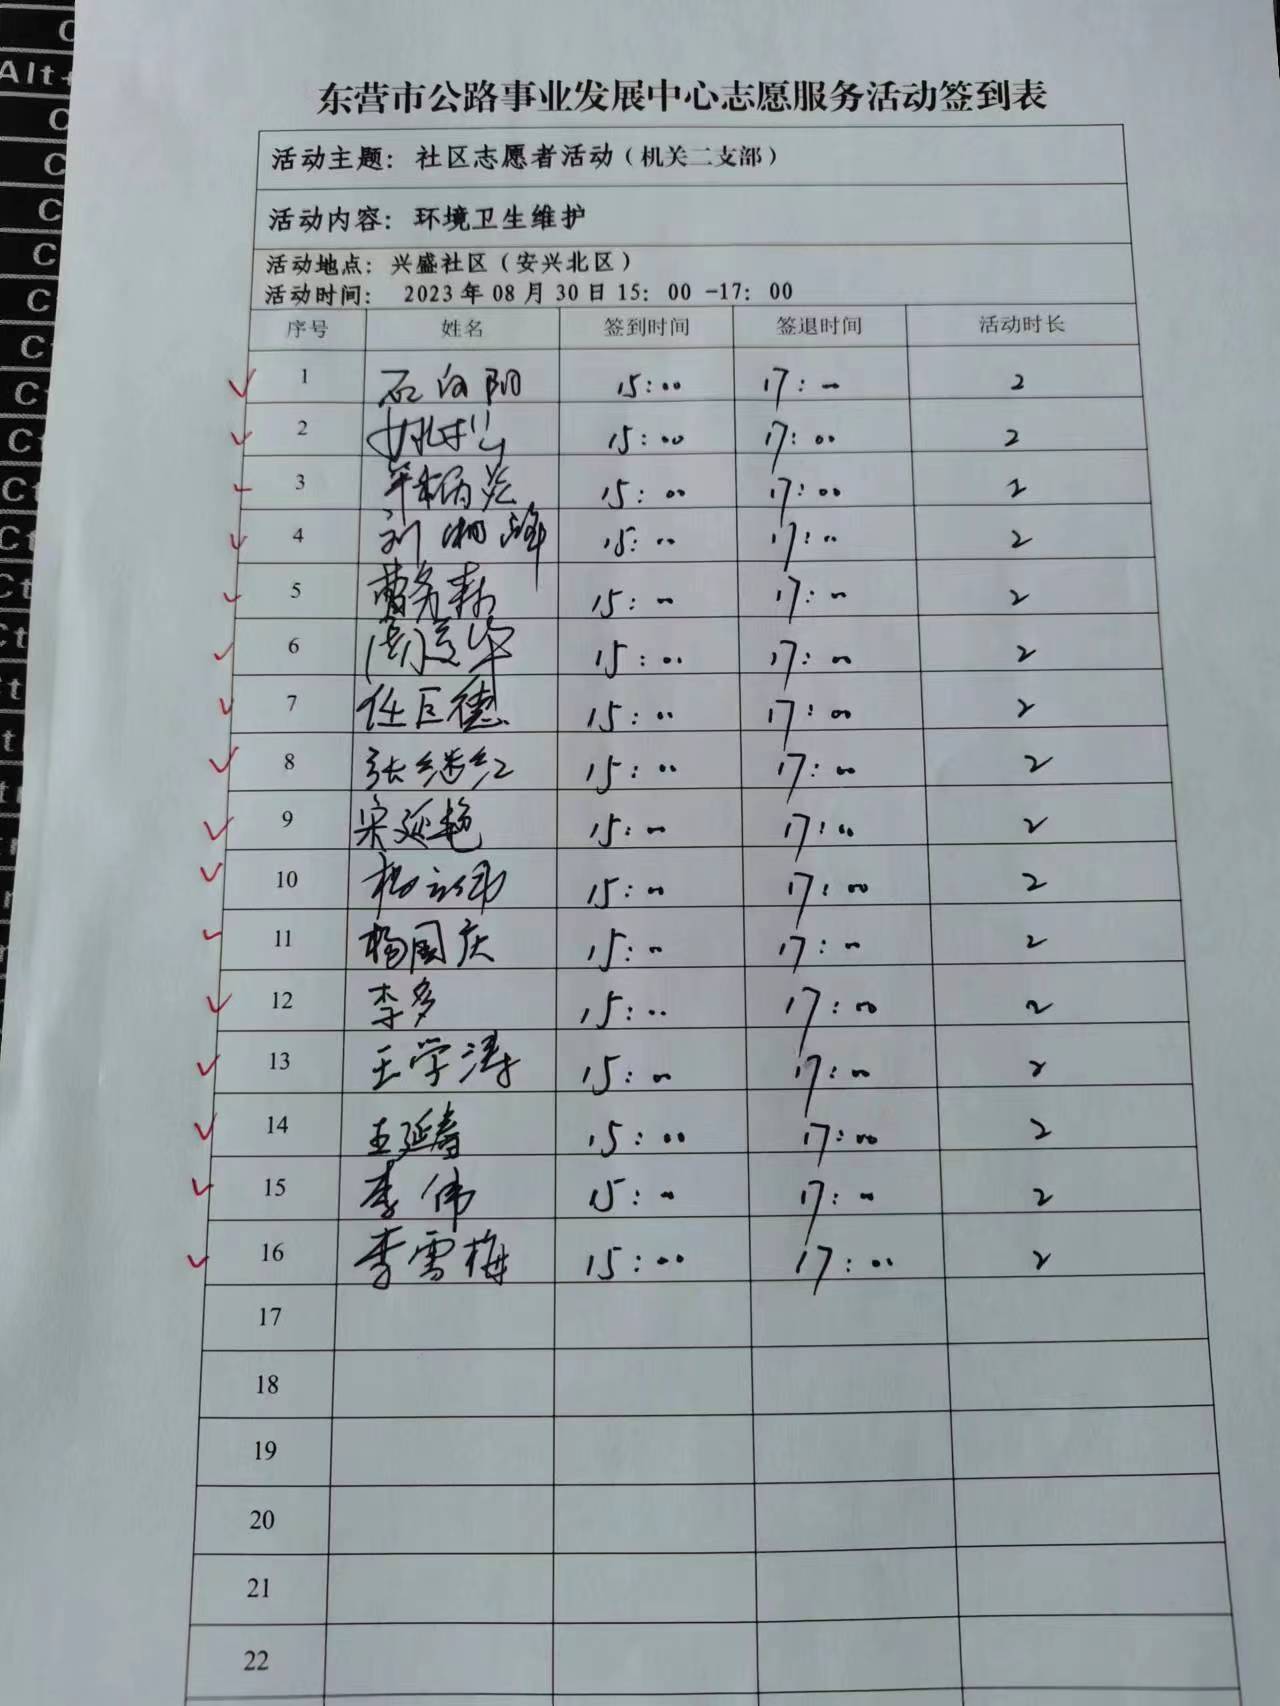 东营市公路事业发展中心志愿服务活动签到表
活动主题：社区志愿者活动（机关二支部）
活动内容：环境卫生维护
活动地点：兴盛社区（安兴北区）
活动时间： 2023年08月30日15：00-17：00
序号 姓名 签到时间 签退时间 活动时长
1 石向阳 15:00 17:00 2
2 15:00 17:00 2
3 15:00 17:00 2
4 刘湘峰 15:00 17:00 2
5 15:00 17:00 2
6 15:00 17:00 2
7 任巨德 15:00 17:00 2
8 张继红 15:00 17:00 2
9 宋延艳 15:00 17:00 2
10 15:00 17:00 2
11 杨国庆 15:00 17:00 2
12 李多 15:00 17:00 2
13 王学涛 15:00 17:00 2
14 王延寿 15:00 17:00 2
15 李伟 15:00 17:00 2
16 李雪梅 15:00 17:00 2
17
18
19
20
21
22